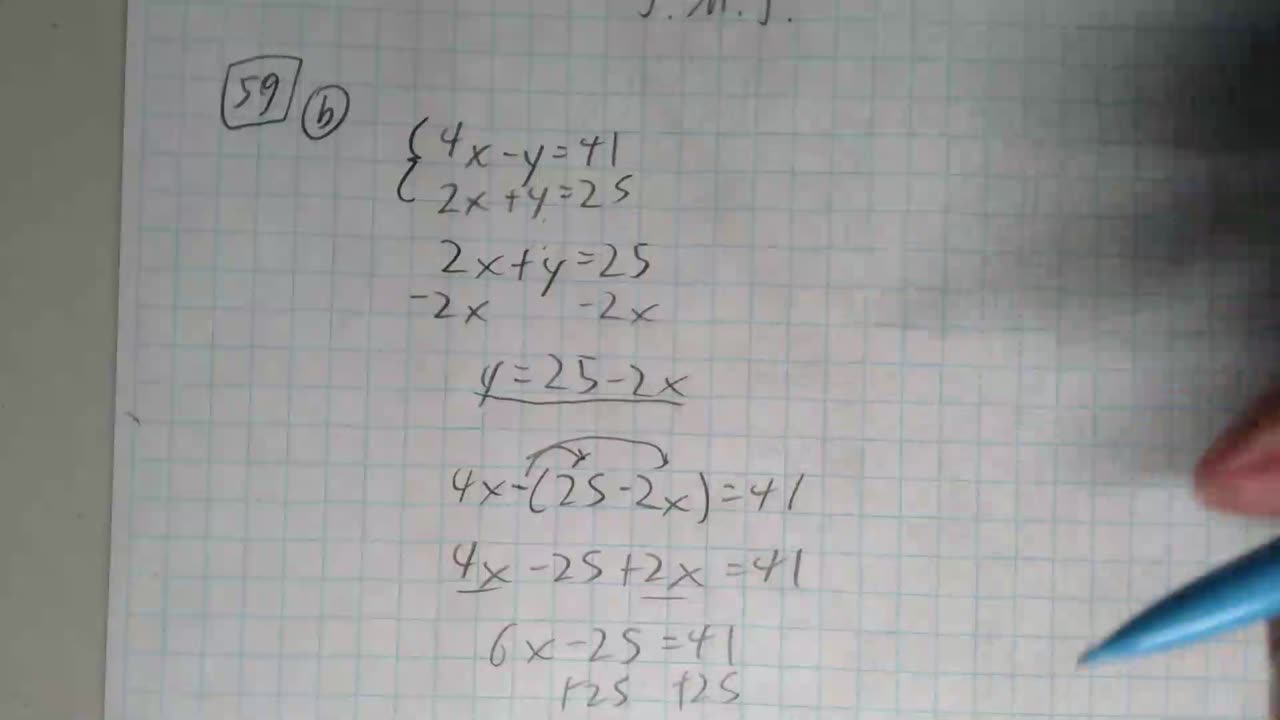 J.M.J.
59 b
4x-y=41
2x+y=25
2x+y=25
-2x -2x
y=25-2x
4x-(25-2x)=41
4x-25+2x=41
6x-25=41
+25 +25